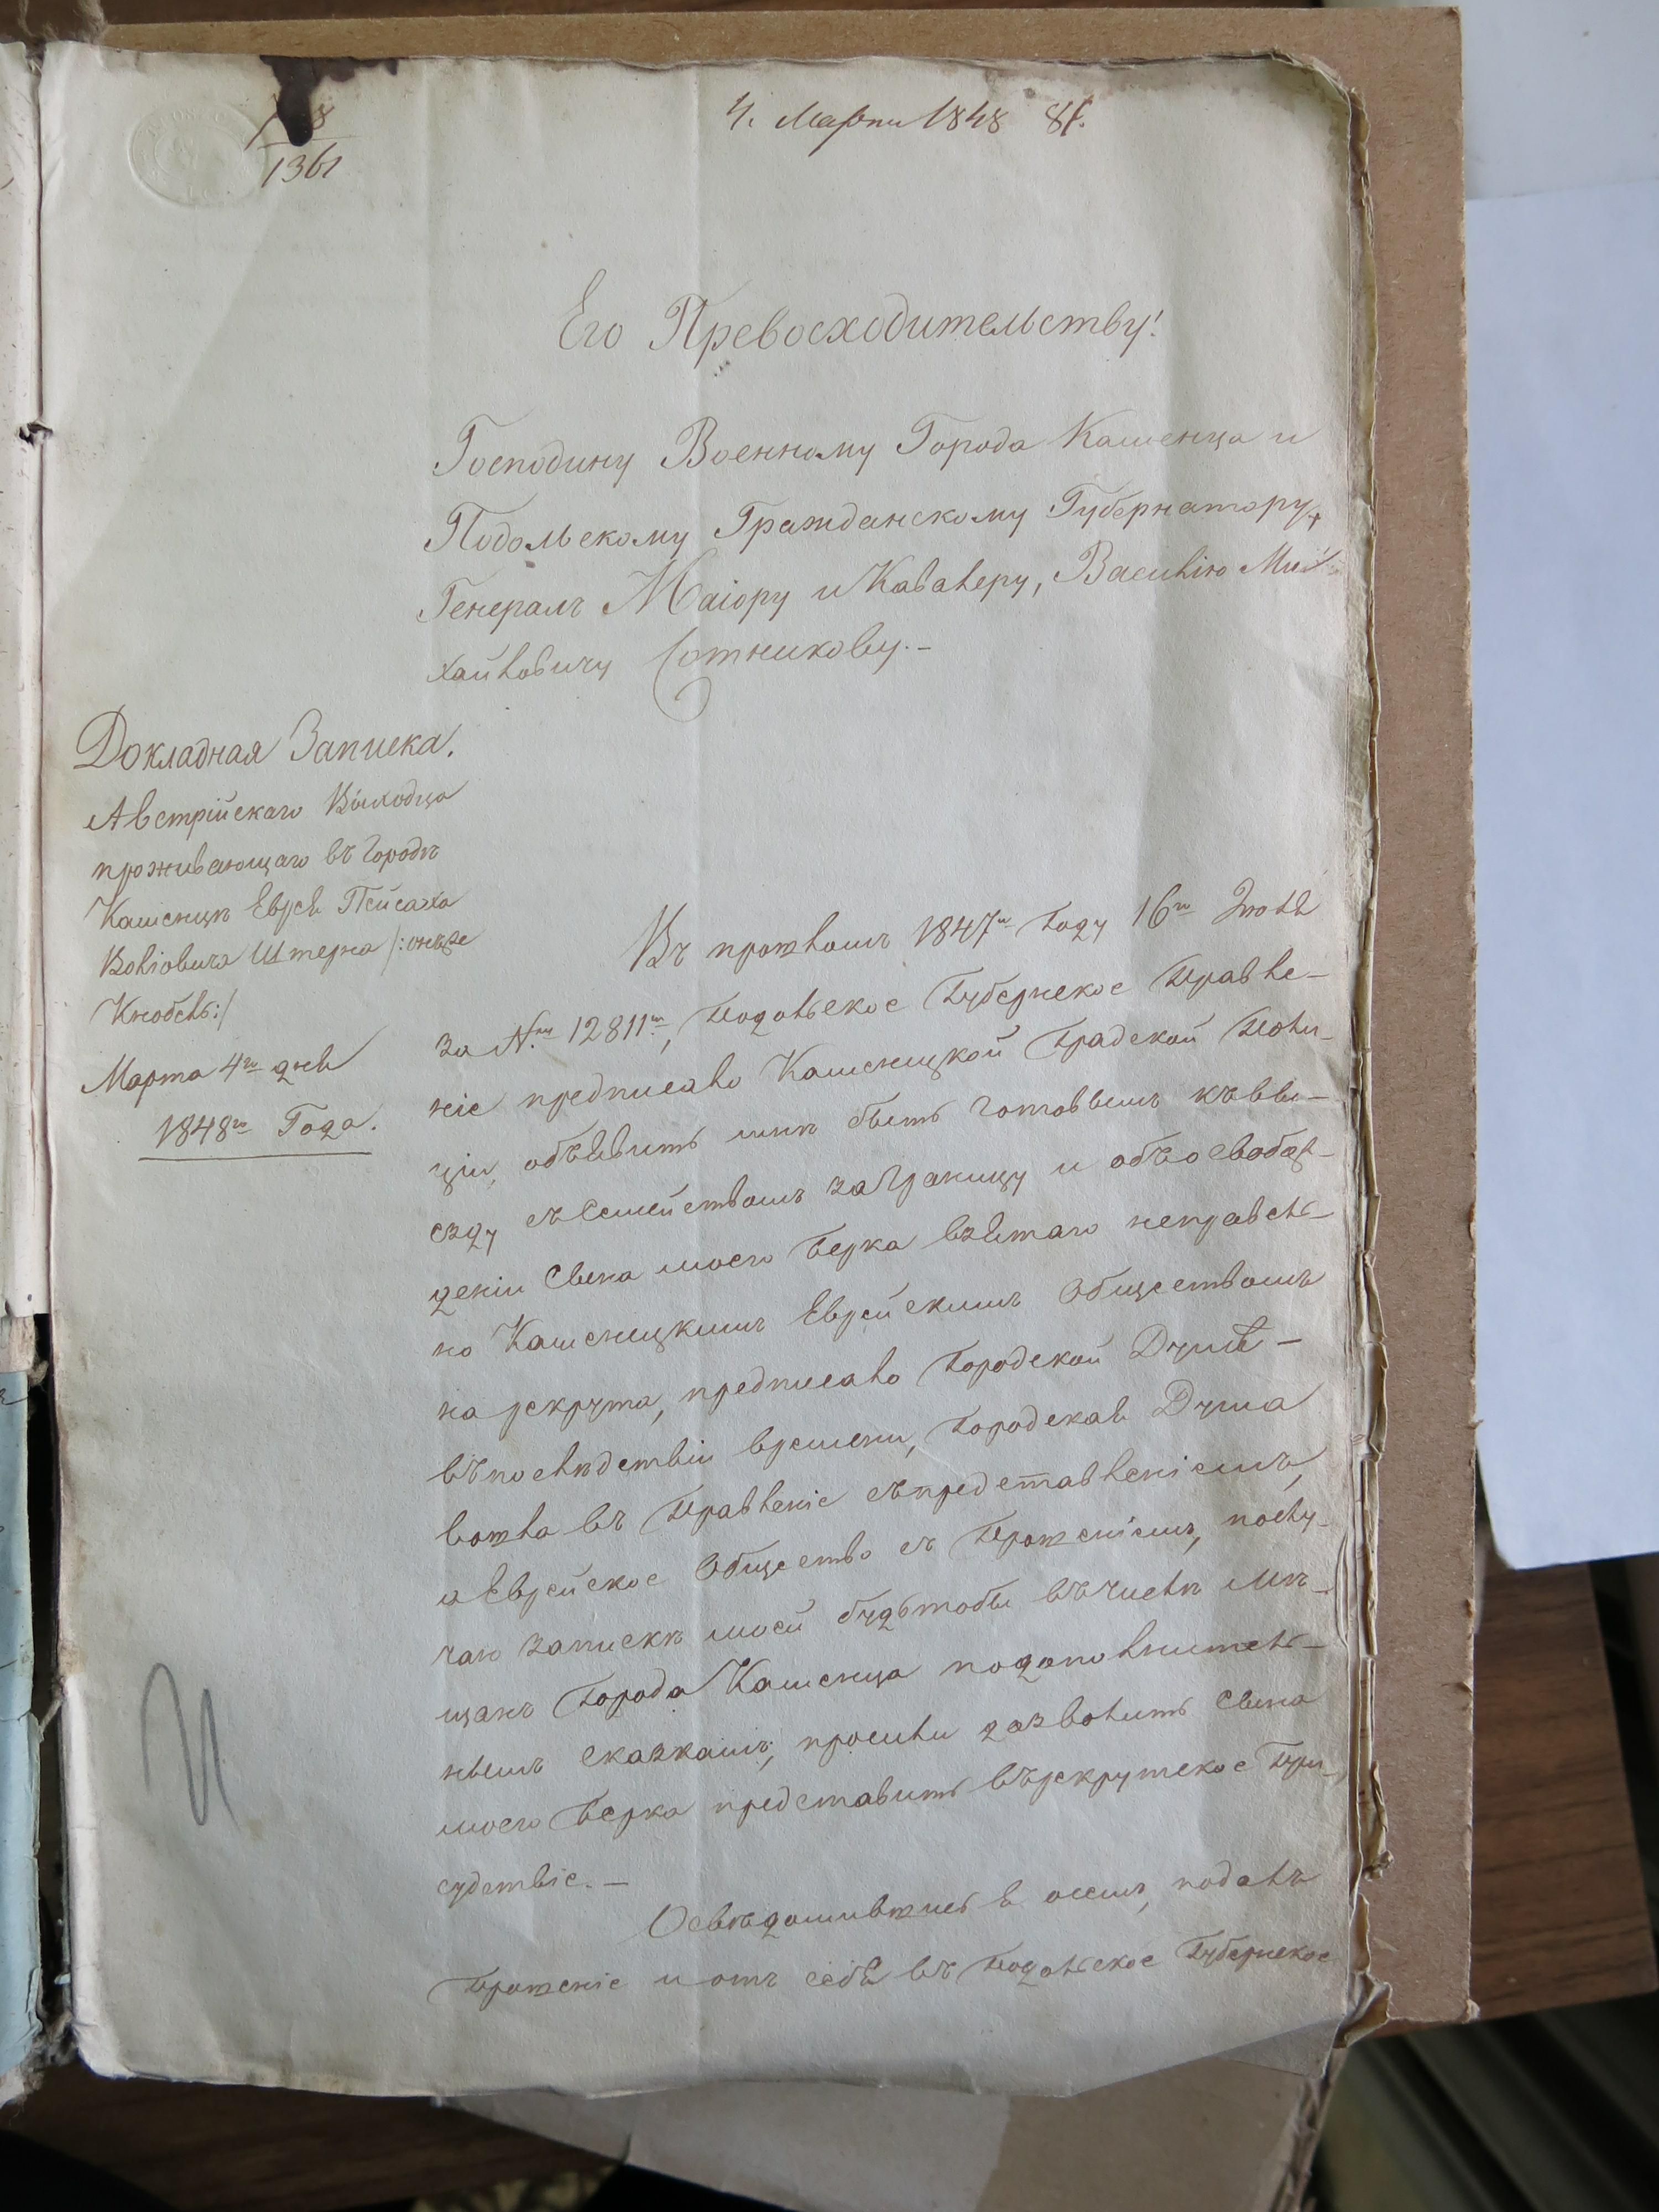 4. Марта 1848 81.
1361
Его Превосходительству!
Господину Военному Города Каменца и
Подольскому Гражданскому Губернатору,
Генералъ Маіору и Кавалеру, Василію Ми-
хайловичу Сотникову. —
Докладная Записка.
Австрійскаго Выходца
проживающаго въ Городѣ
Каменцѣ Еврея Пейсаха
Волховича Штерна /:онъже
Кнобель:/
Марта 4го дня
1848го Года.
Въ прошломъ 1847м Году 16го Іюля
за №мъ 12811мъ, Подольское Губернское Правле-
ніе предписало Каменецкой Градской Поли-
ціи, объявить мнѣ быть готовымъ къ вы-
ѣзду съ Семействомъ за Границу и объ освобож-
деніи Сына моего Берка взятаго неправель-
но Каменецкимъ Еврейскимъ Обществомъ
на рекрута, предписало Городской Думѣ —
въ послѣдствіи времени, Городская Дума
вошла въ Правленіе съ представленіемъ,
а Еврейское Общество съ Прошеніемъ, по слу-
чаю записки моей будьтобы въ числѣ мѣ-
щанъ Города Каменца подополнитель-
нымъ сказкамъ, просили дозволить Сына
моего Берка представить въ рекрутское При-
судствіе. —
Освѣдомившись о семъ, подалъ
Прошеніе и отъ себя въ Подольское Губернское